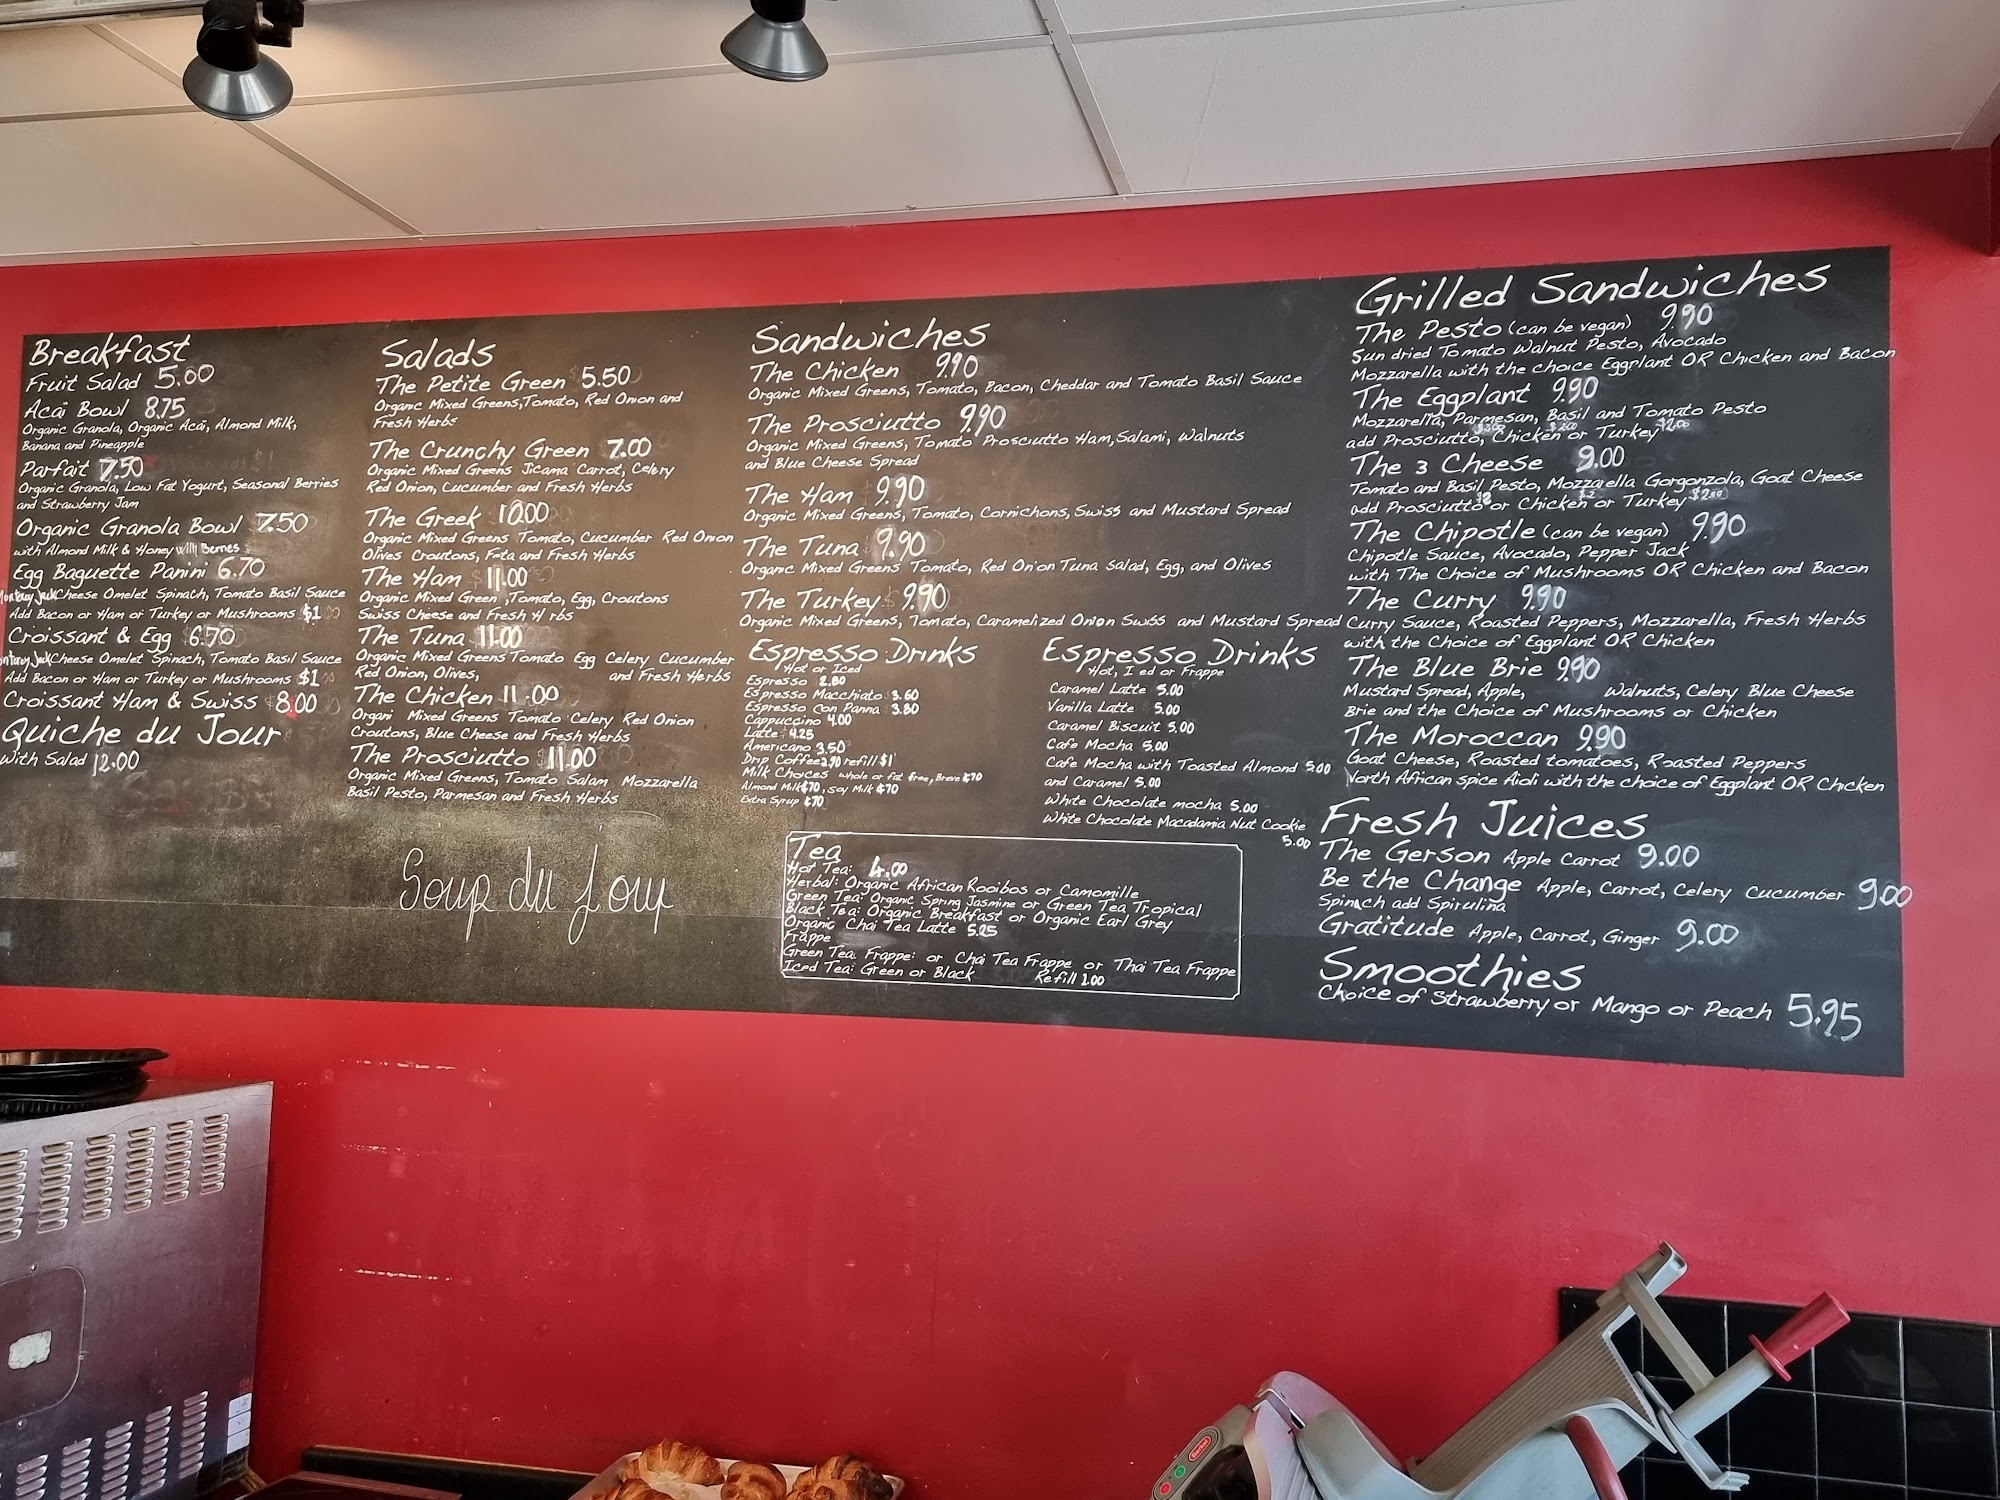 Breakfast
Fruit Salad 5.00
Acaï Bowl 8.75
Organic Granola, Organic Acaï, Almond Milk,
Banana and Pineapple
Parfait 7.50
Organic Granola, Low Fat Yogurt, Seasonal Berries
and Strawberry Jam
Organic Granola Bowl 7.50
with Almond Milk & Honey With Berries
Egg Baguette Panini 6.70
Jack Cheese Omelet Spinach, Tomato Basil Sauce
Add Bacon or Ham or Turkey or Mushrooms $1
Croissant & Egg 6.70
Jack Cheese Omelet Spinach, Tomato Basil Sauce
Add Bacon or Ham or Turkey or Mushrooms $1
Croissant Ham & Swiss 8.00
Quiche du Jour
With Salad 12.00
Salads
The Petite Green 5.50
Organic Mixed Greens, Tomato, Red Onion and
Fresh Herbs
The Crunchy Green 7.00
Organic Mixed Greens Jicama Carrot, Celery
Red Onion, Cucumber and Fresh Herbs
The Greek 10.00
Organic Mixed Greens Tomato, Cucumber Red Onion
Olives Croutons, F ta and Fresh Herbs
The Ham 11.00
Organic Mixed Green , Tomato, Egg, Croutons
Swiss Cheese and Fresh H rbs
The Tuna 11.00
Organic Mixed Greens Tomato Egg Celery Cucumber
Red Onion, Olives, and Fresh Herbs
The Chicken 11.00
Organi Mixed Greens Tomato Celery Red Onion
Croutons, Blue Cheese and Fresh Herbs
The Prosciutto 11.00
Organic Mixed Greens, Tomato Salam Mozzarella
Basil Pesto, Parmesan and Fresh Herbs
Soup du Jour
Sandwiches
The Chicken 9.90
Organic Mixed Greens, Tomato, Bacon, Cheddar and Tomato Basil Sauce
The Prosciutto 9.90
Organic Mixed Greens, Tomato Prosciutto Ham, Salami, Walnuts
and Blue Cheese Spread
The Ham 9.90
Organic Mixed Greens, Tomato, Cornichons, Swiss and Mustard Spread
The Tuna 9.90
Organic Mixed Greens Tomato, Red Onion Tuna Salad, Egg, and Olives
The Turkey 9.90
Organic Mixed Greens, Tomato, Caramelized Onion Swiss and Mustard Spread
Espresso Drinks
Hot or Iced
Espresso 2.80
Espresso Macchiato 3.60
Espresso Con Panna 3.80
Cappuccino 4.00
Latte 4.25
Americano 3.50
Drip Coffee 2.90 refill $1
Milk Choices whole or fat free, Breve ¢70
Almond Milk ¢70, Soy Milk ¢70
Extra Syrup ¢70
Espresso Drinks
Hot, I ed or Frappe
Caramel Latte 5.00
Vanilla Latte 5.00
Caramel Biscuit 5.00
Cafe Mocha 5.00
Cafe Mocha with Toasted Almond 5.00
and Caramel 5.00
White Chocolate mocha 5.00
White Chocolate Macadamia Nut Cookie
5.00
Tea
Hot Tea: 4.00
Herbal: Organic African Rooibos or Camomille
Green Tea: Organic Spring Jasmine or Green Tea Tropical
Black Tea: Organic Breakfast or Organic Earl Grey
Organic Chai Tea Latte 5.25
Frappe
Green Tea Frappe: or Chai Tea Frappe or Thai Tea Frappe
Iced Tea: Green or Black Refill 1.00
Grilled Sandwiches
The Pesto (can be vegan) 9.90
Sun dried Tomato Walnut Pesto, Avocado
Mozzarella with the choice Eggplant OR Chicken and Bacon
The Eggplant 9.90
Mozzarella, Parmesan, Basil and Tomato Pesto
add Prosciutto, Chicken or Turkey $2.00
The 3 Cheese 9.00
Tomato and Basil Pesto, Mozzarella Gorgonzola, Goat Cheese
add Prosciutto or Chicken or Turkey $2.00
The Chipotle (can be vegan) 9.90
Chipotle Sauce, Avocado, Pepper Jack
with The Choice of Mushrooms OR Chicken and Bacon
The Curry 9.90
Curry Sauce, Roasted Peppers, Mozzarella, Fresh Herbs
with the Choice of Eggplant OR Chicken
The Blue Brie 9.90
Mustard Spread, Apple, Walnuts, Celery Blue Cheese
Brie and the Choice of Mushrooms or Chicken
The Moroccan 9.90
Goat Cheese, Roasted tomatoes, Roasted Peppers
North African spice Aioli with the choice of Eggplant OR Chicken
Fresh Juices
The Gerson Apple Carrot 9.00
Be the Change Apple, Carrot, Celery Cucumber 9.00
Spinach add Spirulina
Gratitude Apple, Carrot, Ginger 9.00
Smoothies
Choice of Strawberry or Mango or Peach 5.95
Berkel